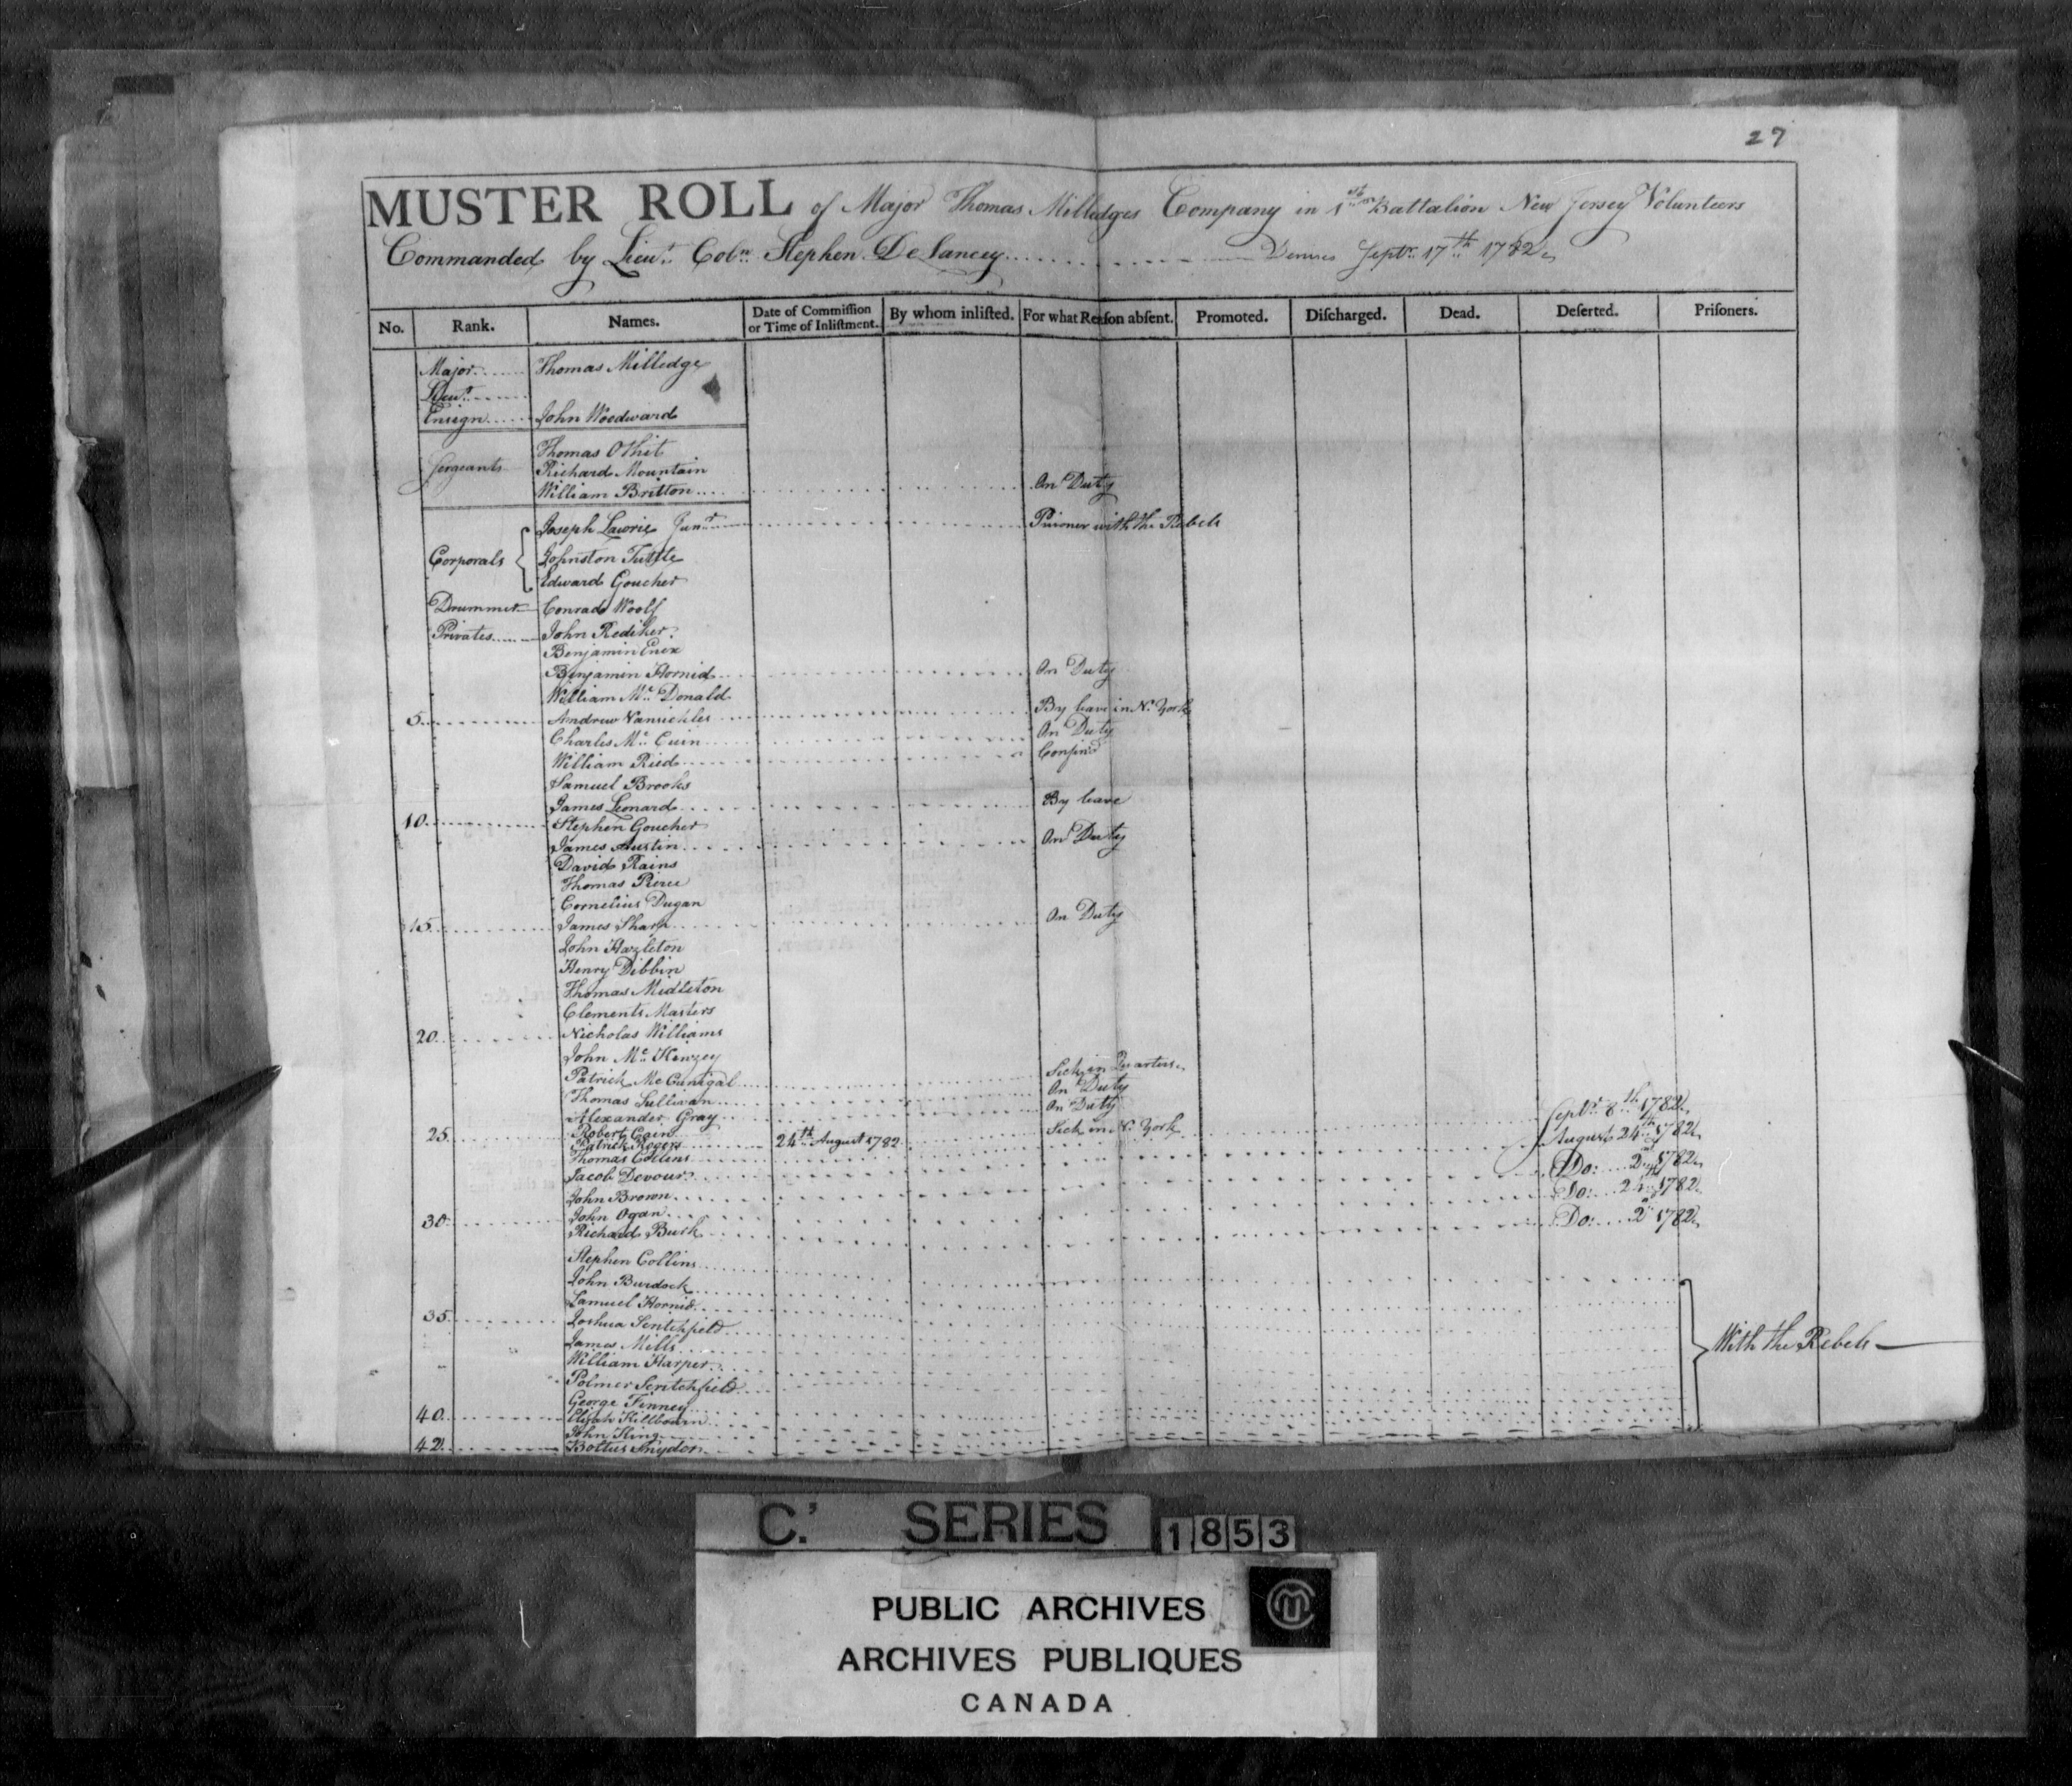 27
MUSTER ROLL of Major Thomas Milledges Company in 1st Battalion New Jersey Volunteers
Commanded by Lieut. Coln. Stephen DeLancey Denises Septr. 17th 1782
No. Rank. Names. Date of Commiſſion or Time of Inliſtment. By whom inliſted. For what Reaſon abſent. Promoted. Diſcharged. Dead. Deſerted. Priſoners.
Major Thomas Milledge
Lieut.
Ensign John Woodward
Thomas Othit
Sergeants Richard Mountain
William Britton On Duty
Joseph Lawrie Junr. Prisoner with the Rebels
Corporals Johnston Tuttle
Edward Goucher
Drummer Conrad Woolf
Privates John Rediker
Benjamin Enix
Benjamin Hornid On Duty
William Mc. Donald
5 Andrew Vansickler By leave in N. York
Charles Mc. Cuin On Duty
William Ried Confin'd
Samuel Brooks
James Leonard By leave
10 Stephen Goucher
James Austin On Duty
David Rains
Thomas Pierce
Cornelius Dugan
15 James Sharp On Duty
John Hazleton
Henry Dibbin
Thomas Midleton
Clements Masters
20 Nicholas Williams
John Mc. Kinzey
Patrick McCunigal Sick in Quarters
Thomas Sullivan On Duty
Alexander Gray On Duty
25 Robert Cain Sick in N. York
Patrick Rogers 24th August 1782
Thomas Collins Septr. 8th 1782
Jacob Devour August 24th 1782
John Brown Do: 2d 1782
30 John Ogan Do: 24th 1782
Richard Bush Do: 2d 1782
Stephen Collins
John Burdock
Samuel Hornid
35 Joshua Scritchfield
James Mills With the Rebels
William Harper
Polmer Scritchfield
George Finney
40 Elijah Killbourn
John King
42 Boltus Snydon
C.' SERIES 1853
PUBLIC ARCHIVES
ARCHIVES PUBLIQUES
CANADA